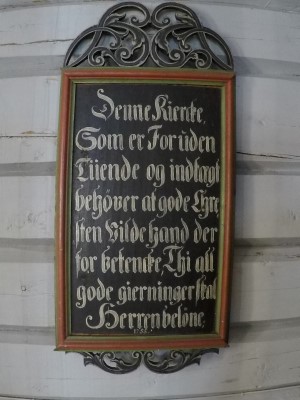 Denne Kiercke,
Som er Foruden
Tiiende og indtægt
behøver at gode Chre,
sten Vilde Haand der
for betencke, Thi all
gode gierninger skal
Herren beløne,